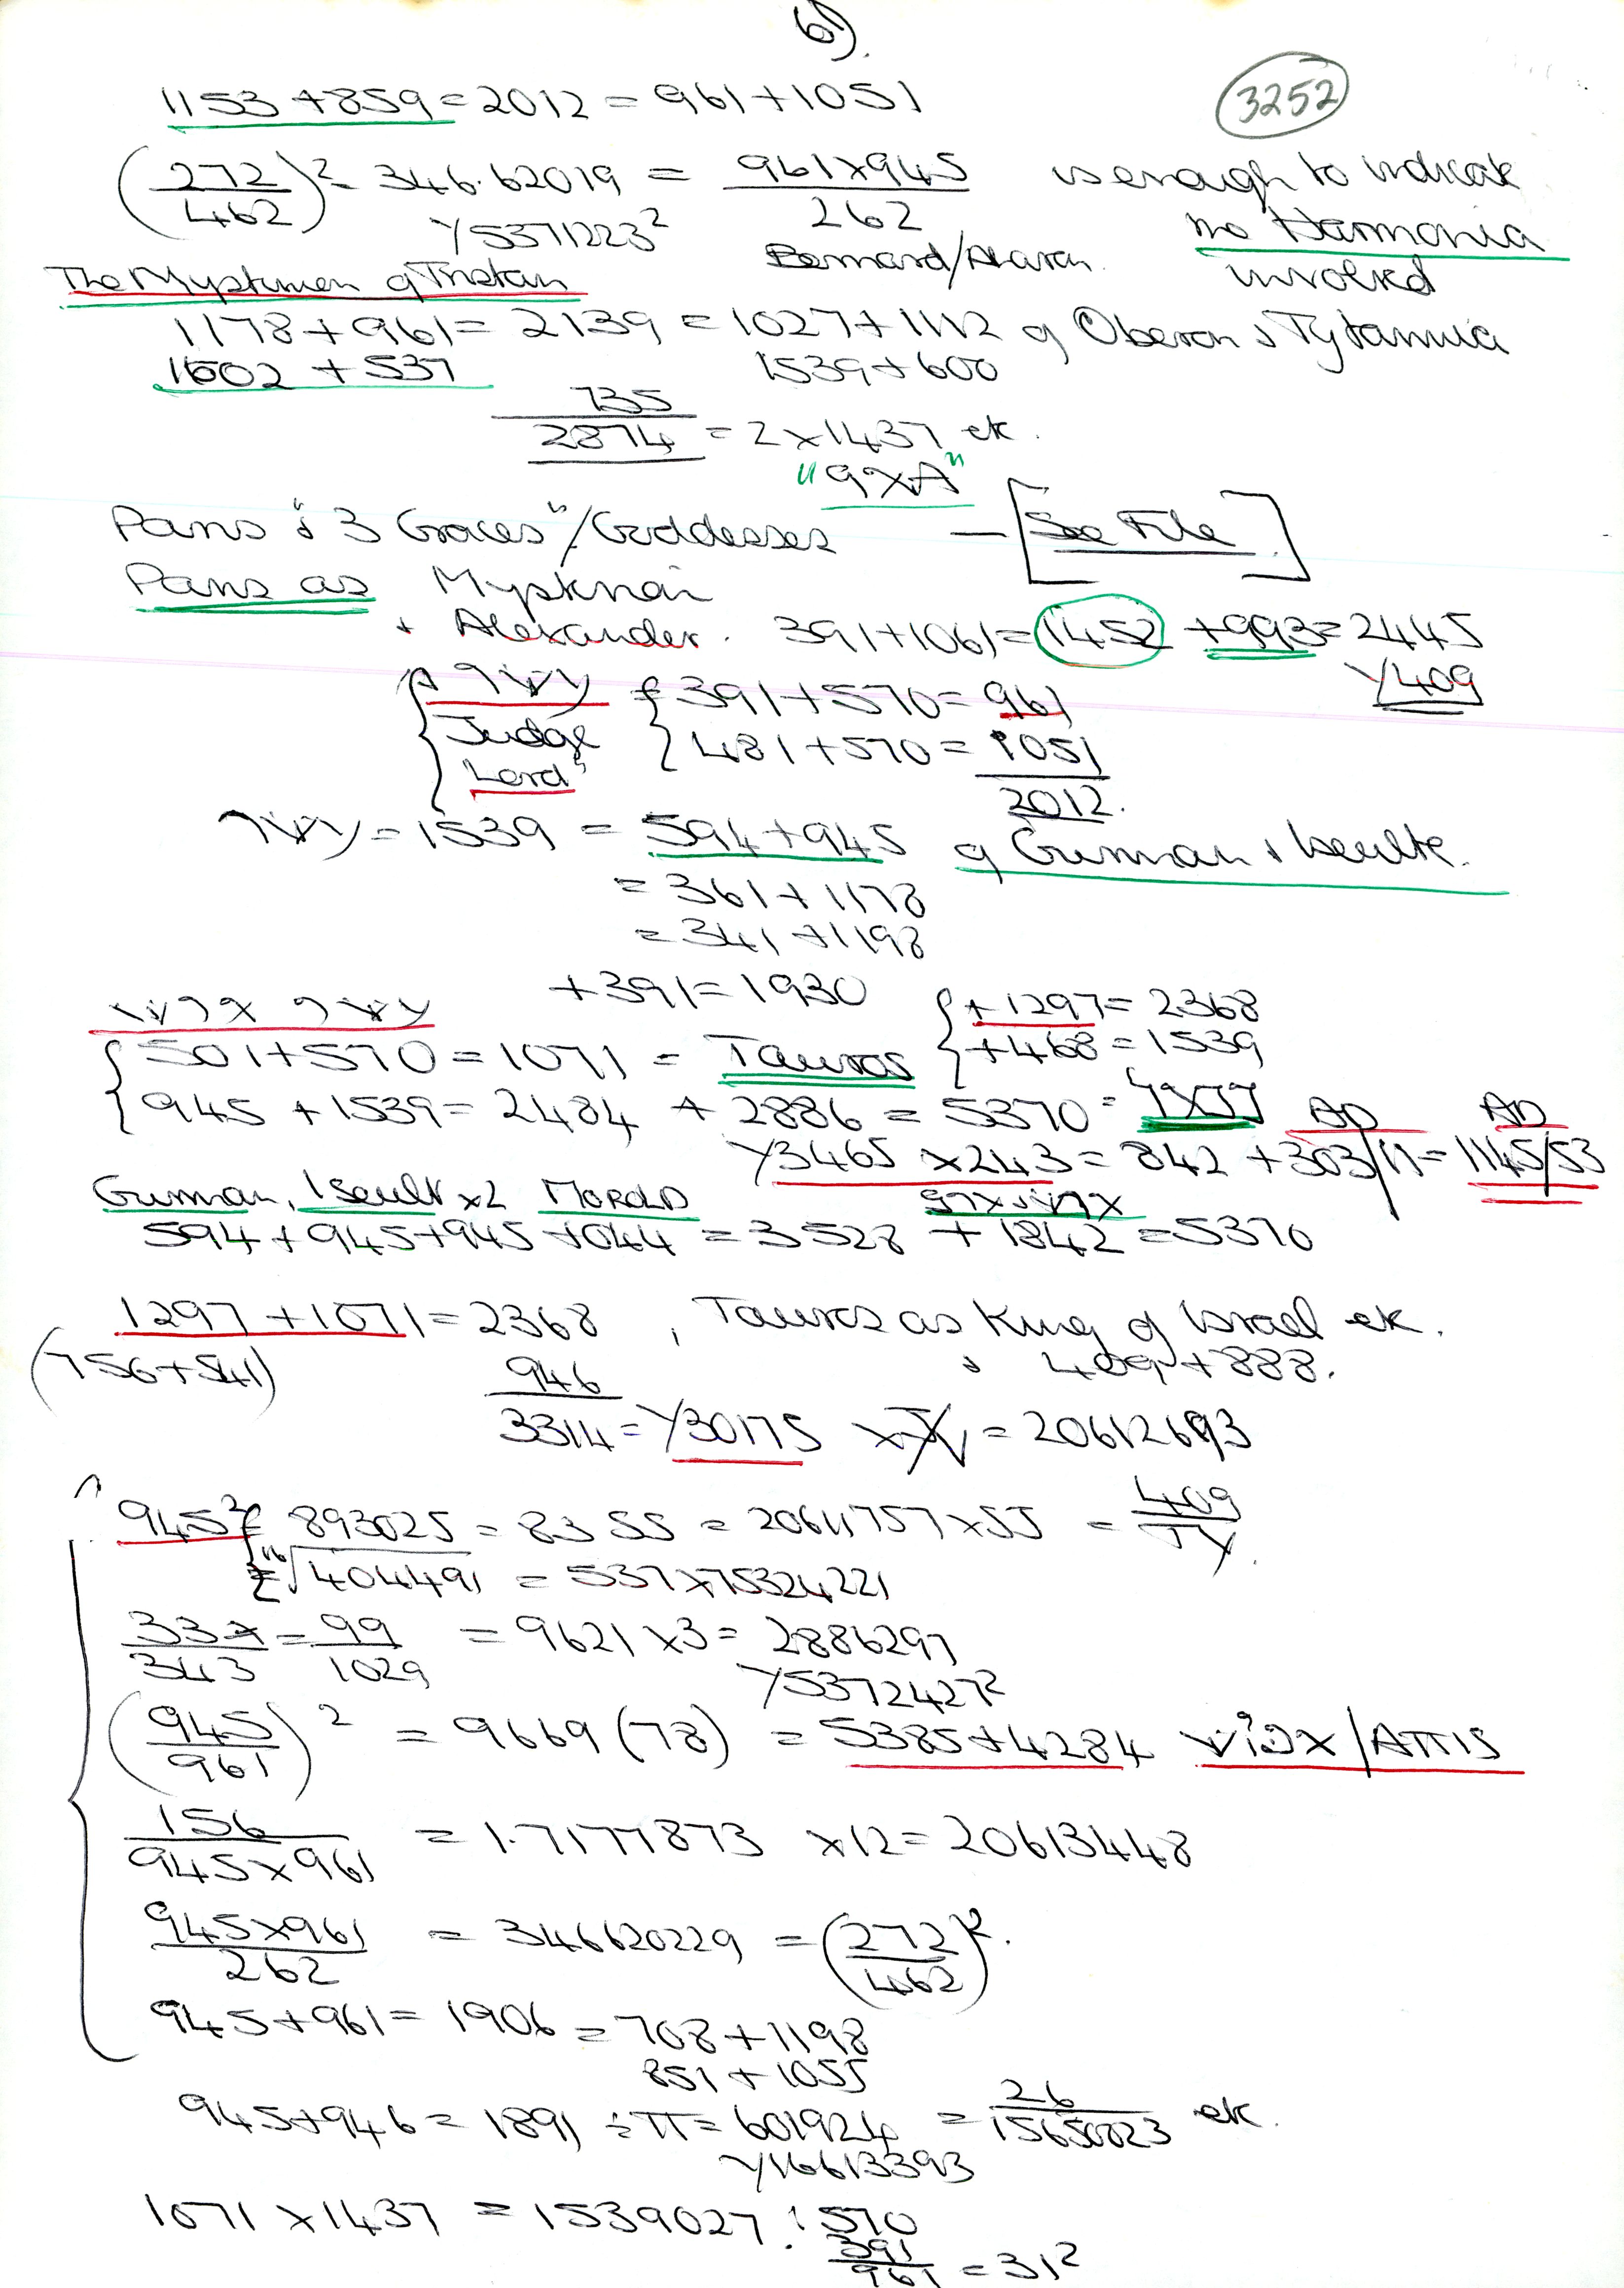 6).
3252
1153 + 859 = 2012 = 961 + 1051
(272/462)² = 346.62019 = 961 x 945 / 262 is enough to indicate
Y5371223² Bernard/ the Harmonia
involved
The Mysterion of Tristan
1178 + 961 = 2139 = 1027 + 1112 of Oberon & Tytannia
1602 + 537 1539 + 600
735
2874 = 2 x 1437 etc.
"9XA"
Paris & "3 Graces"/Goddesses — [See File]
Paris as Mysterion
+ Alexander. 391 + 1061 = 1452 + 993 = 2445
Y409
{ Judge "Lord" { 391 + 570 = 961
481 + 570 = 1051
2012.
= 1539 = 594 + 945 of Gurman & Iseulte.
= 361 + 1178
= 341 + 1198
+ 391 = 1930
{ 501 + 570 = 1071 = Tauros { + 1297 = 2368
+ 468 = 1539
945 + 1539 = 2484 + 2886 = 5370 =
Y3465 x 243 = 842 + 303/11 = 1145/53
AD AD
Gurman, Iseult x2 MOROLD
594 + 945 + 945 + 1044 = 3528 + 1842 = 5370
1297 + 1071 = 2368, Tauros as King of Israel etc.
(756 + 541) & 409 + 888.
946
3314 = Y30175 x = 20612693
945² { = 893025 = 8355 = 20611757 x 55 = 409
= √404491 = 537 x 75324221
33 x/343 = 99/1029 = 9621 x 3 = 2886297
Y5372427²
(945/961)² = 9669(78) = 5385 + 4284 /ATTIS
156/945 x 961 = 1.7177873 x 12 = 20613448
945 x 961/262 = 346620229 = (272/462)².
945 + 961 = 1906 = 708 + 1198
851 + 1055
945 + 946 = 1891 ÷ π = 601924 = 26/15650023 etc.
Y16613393
1071 x 1437 = 1539027 : 570
391
961 = 31²